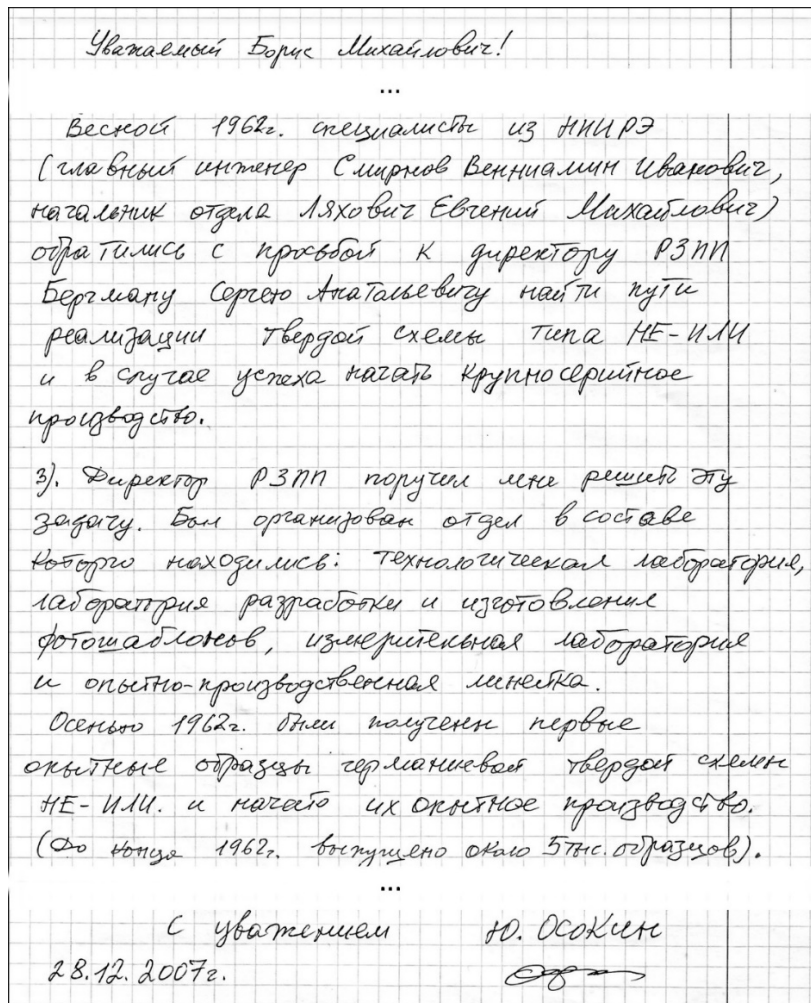 Уважаемый Борис Михайлович!
...
Весной 1962г. специалисты из НИИРЭ
(главный инженер Смирнов Венниамин Иванович,
начальник отдела Ляхович Евгений Михайлович)
обратились с просьбой к директору РЗПП
Бергману Сергею Анатольевичу найти пути
реализации твердой схемы типа НЕ-ИЛИ
и в случае успеха начать крупносерийное
производство.
3). Директор РЗПП поручил мне решить эту
задачу. Был организован отдел в составе
которго находились: технологическая лаборатория,
лаборатория разработки и изготовления
фотошаблонов, измерительная лаборатория
и опытно-производственная линейка.
Осенью 1962г. были получены первые
опытные образцы германиевой твердой схемы
НЕ-ИЛИ. и начато их опытное производство.
(До конца 1962г. выпущено около 5 тыс. образцов).
...
С уважением Ю. Осокин
28.12.2007г.